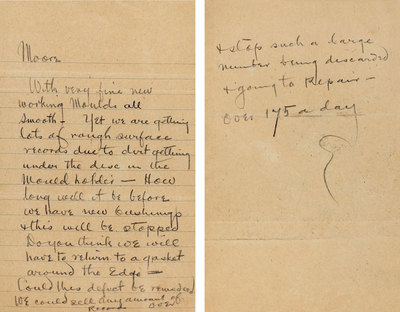 Moore
With very fine new
working Moulds all
smooth - Yet we are getting
lots of rough surface
records due to dirt getting
under the disc in the
Mould holder - How
long will it be before
we have new bushings
& this will be stopped
Do you think we will
have to return to a gasket
around the Edge -
Could this defect be remedied
We could sell any amount of
Records over
& stop such a large
number being discarded
& going to Repair -
over 175 a day